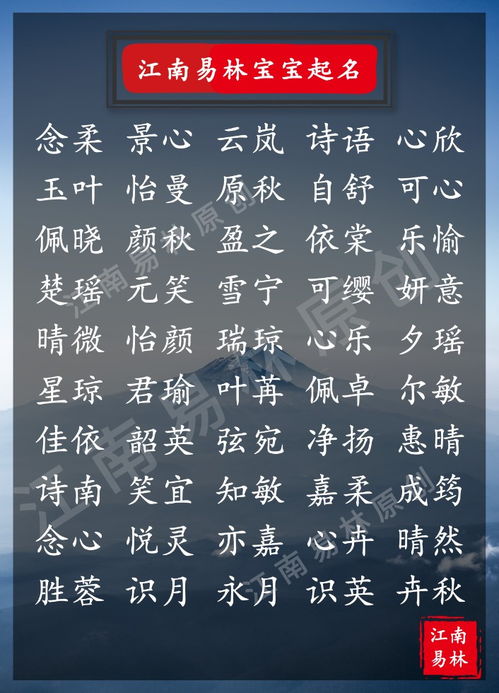 江南易林宝宝起名
念柔 景心 云岚 诗语 心欣
玉叶 怡曼 原秋 自舒 可心
佩晓 颜秋 盈之 依棠 乐愉
楚瑶 元笑 雪宁 可缨 妍意
晴微 怡颜 瑞琼 心乐 夕瑶
星琼 君瑜 叶苒 佩卓 尔敏
佳依 韶英 弦宛 净扬 惠晴
诗南 笑宜 知敏 嘉柔 成筠
念心 悦灵 亦嘉 心卉 晴然
胜蓉 识月 永月 识英 卉秋
江南易林原创
江南易林原创
江南易林原创
江南
易林